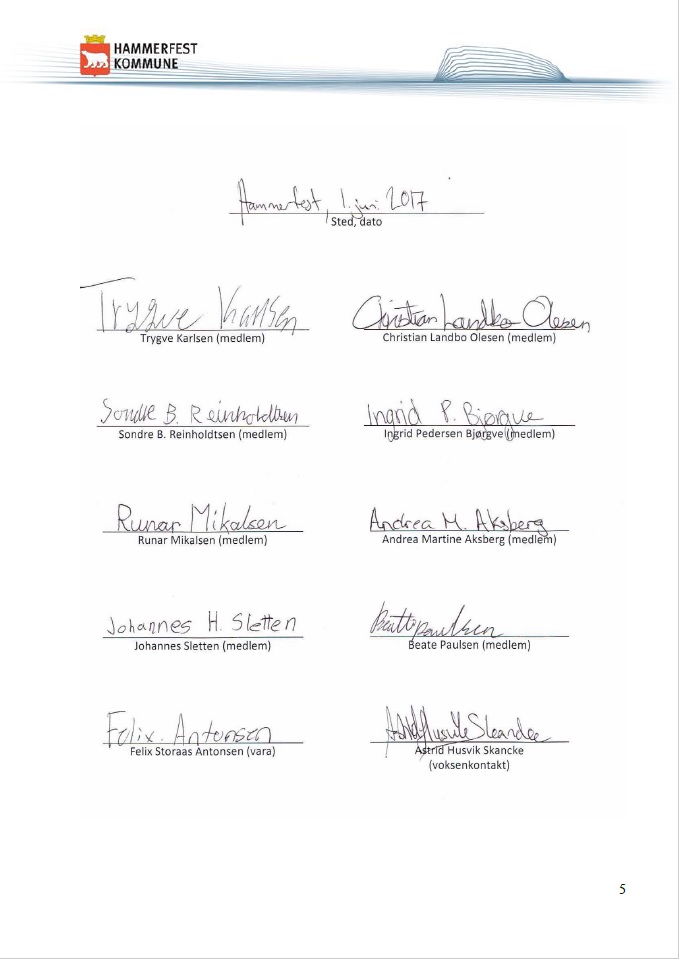 HAMMERFEST
KOMMUNE
Hammerfest, 1. juni 2017
Sted, dato
Trygve Karlsen
Trygve Karlsen (medlem)
Christian Landbo Olesen
Christian Landbo Olesen (medlem)
Sondre B. Reinholdtsen
Sondre B. Reinholdtsen (medlem)
Ingrid P. Bjørgve
Ingrid Pedersen Bjørgve (medlem)
Runar Mikalsen
Runar Mikalsen (medlem)
Andrea M. Aksberg
Andrea Martine Aksberg (medlem)
Johannes H. Sletten
Johannes Sletten (medlem)
Beate Paulsen
Beate Paulsen (medlem)
Felix. Antonsen
Felix Storaas Antonsen (vara)
Astrid Husvik Skancke
Astrid Husvik Skancke
(voksenkontakt)
5